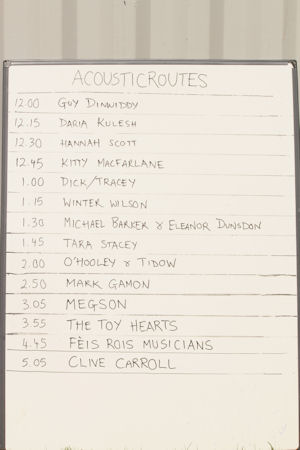 ACOUSTICROUTES
12.00 GUY DINWIDDY
12.15 DARIA KULESH
12.30 HANNAH SCOTT
12.45 KITTY MACFARLANE
1.00 DICK/TRACEY
1.15 WINTER WILSON
1.30 MICHAEL BARKER & ELEANOR DUNSDON
1.45 TARA STACEY
2.00 O'HOOLEY & TIDOW
2.50 MARK GAMON
3.05 MEGSON
3.55 THE TOY HEARTS
4.45 FÈIS ROIS MUSICIANS
5.05 CLIVE CARROLL